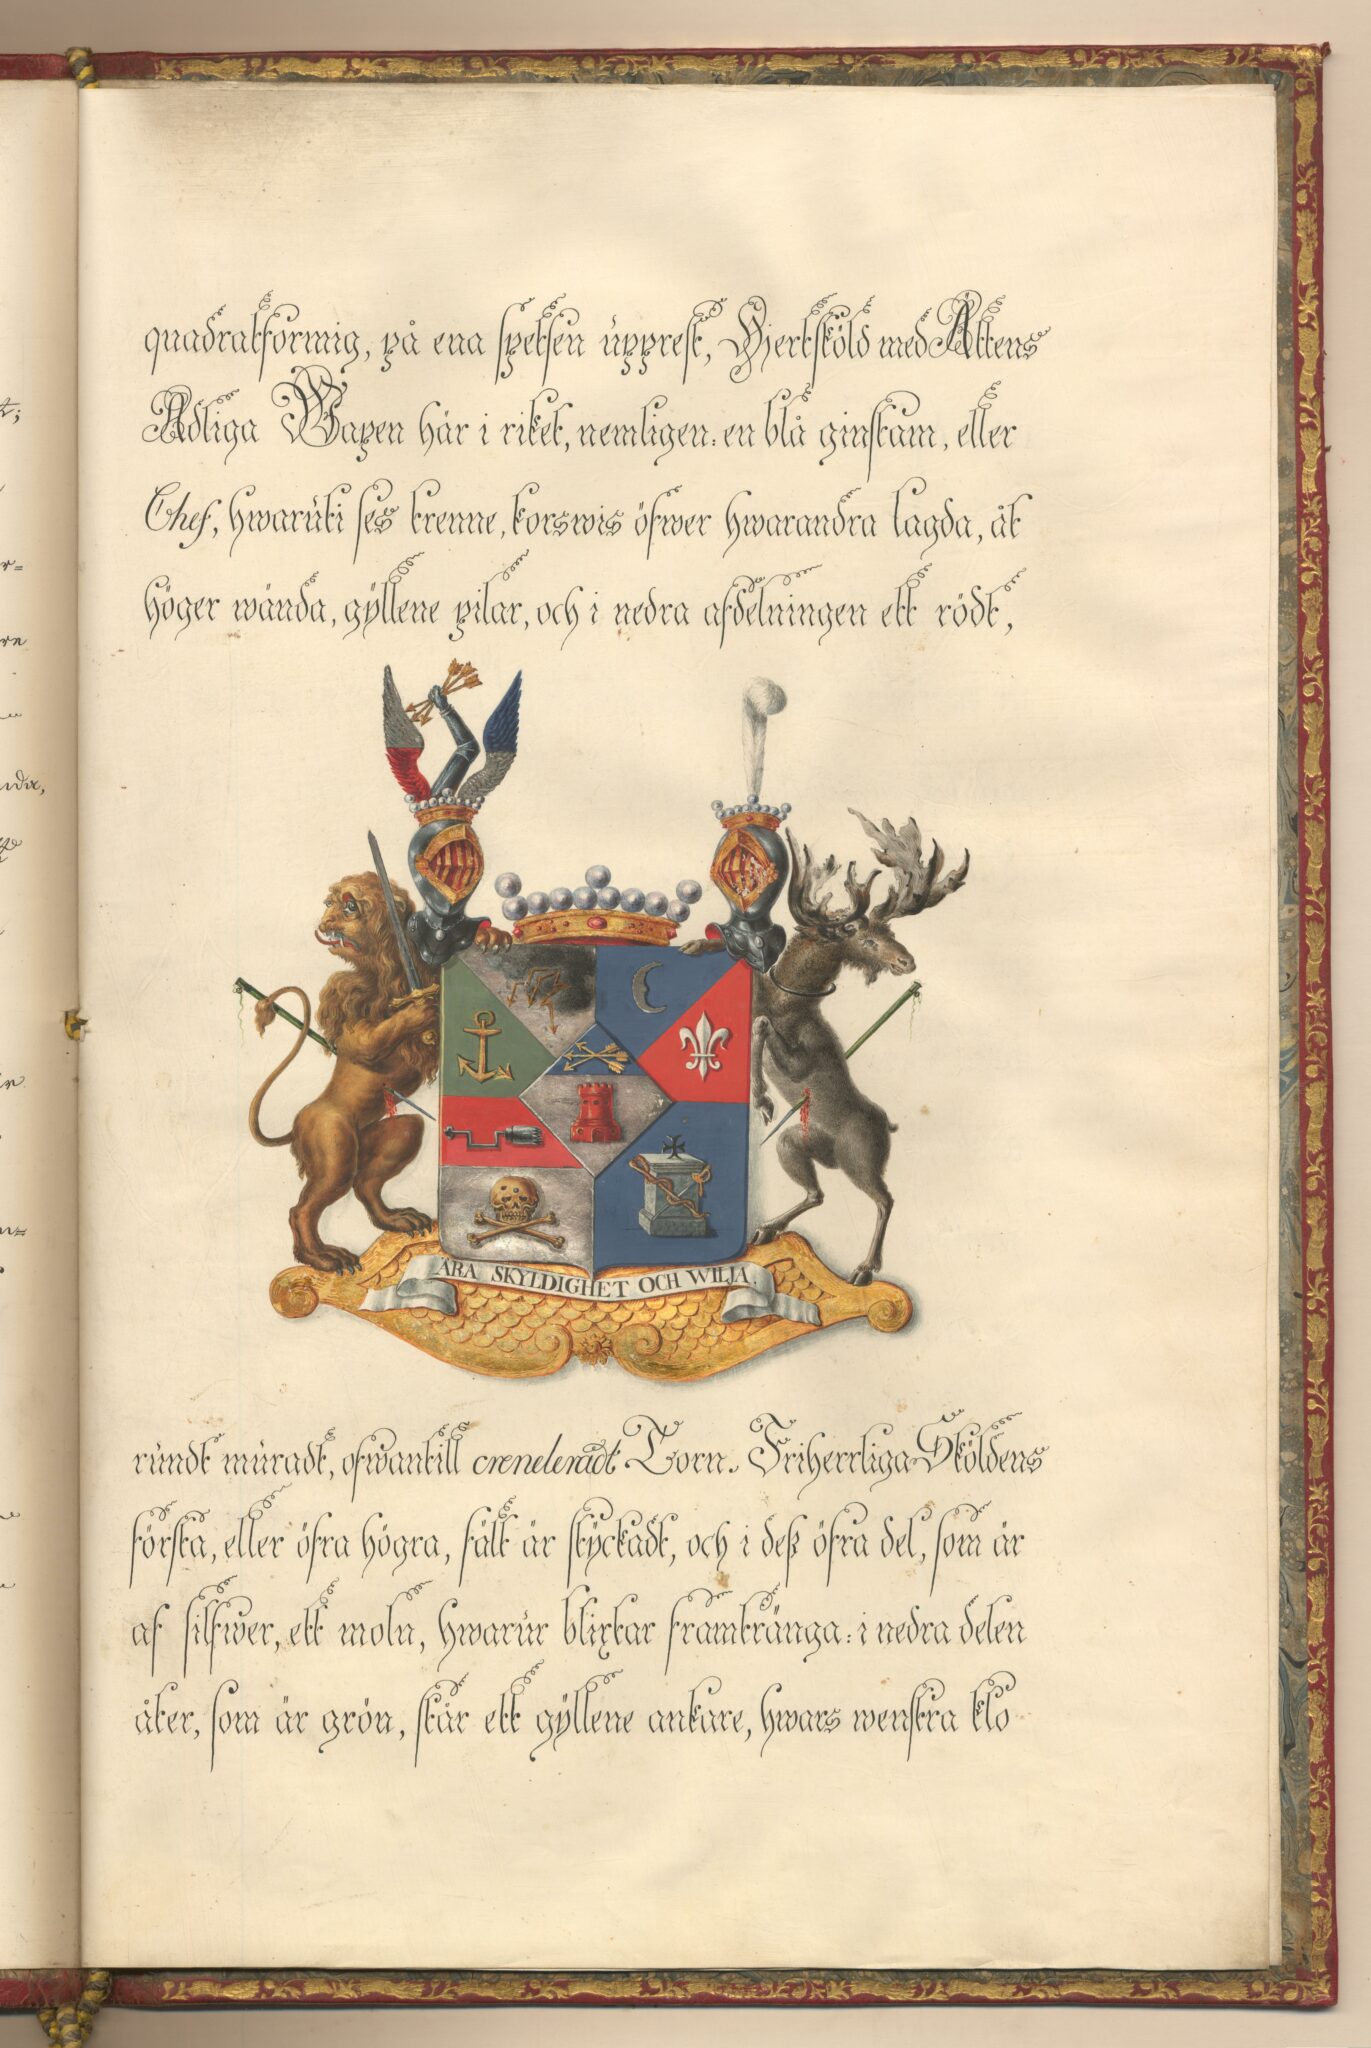 quadratformig, på ena spetsen upprest, Hjertsköld med Ättens
Adliga Wapen här i riket, nemligen: en blå ginstam, eller
Chef, hwaruti ses trenne, korswis öfwer hwarandra lagda, åt
höger wända, gyllene pilar, och i nedra afdelningen ett rödt,
ÄRA SKYLDIGHET OCH WILJA.
rundt muradt, ofwantill creneleradt Torn. Friherrliga Sköldens
första, eller öfra högra, fält är styckadt, och i deß öfra del, som är
af silfwer, ett moln, hwarur blixtar framtränga: i nedra delen
åter, som är grön, står ett gyllene ankare, hwars wenstra klo